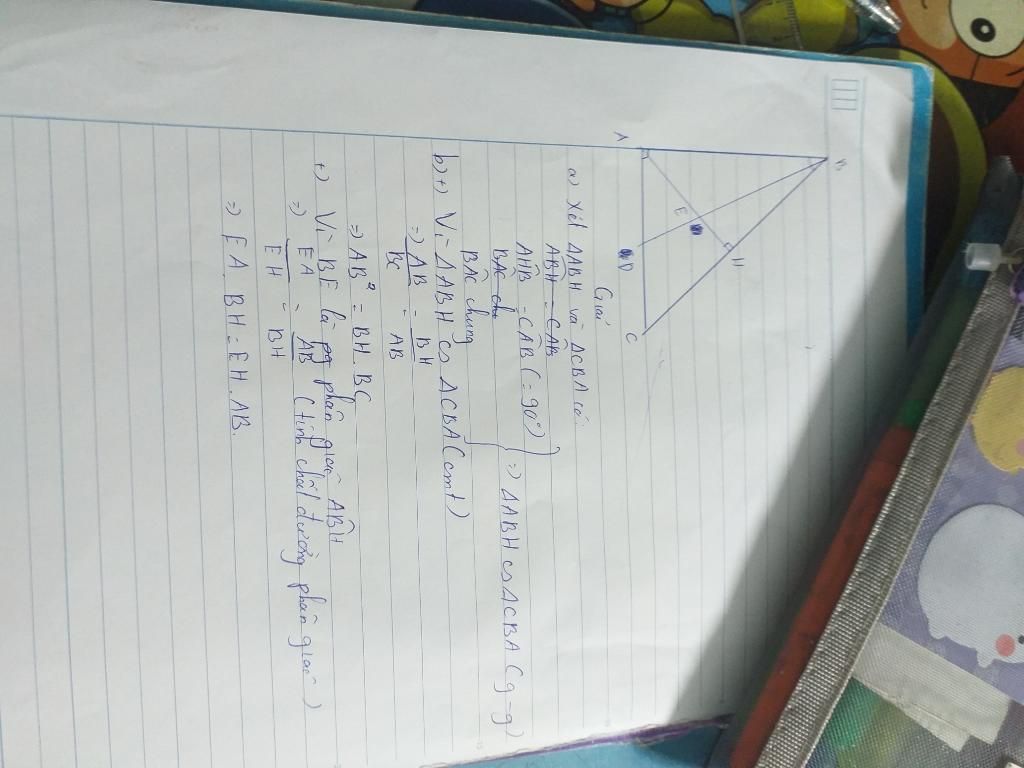 B
A
E
H
D
C
Giải
a) Xét ΔABH và ΔCBA có:
ABH = CAB
AHB = CAB (= 90°)
BAC chu
BAC chung
=> ΔABH ∽ ΔCBA (g-g)
b) +) Vì ΔABH ∽ ΔCBA (cmt)
=> AB/BC = BH/AB
=> AB² = BH. BC
+) Vì BE là pg phân giác ABH
=> EA/EH = AB/BH (tính chất đường phân giác)
=> EA. BH = EH. AB.